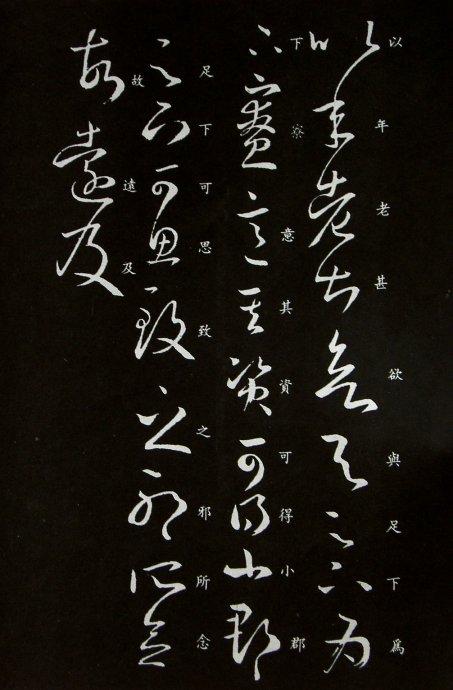 以年老甚欲與足下為
下寮意其資可得小郡
足下可思致之邪所念
故遠及